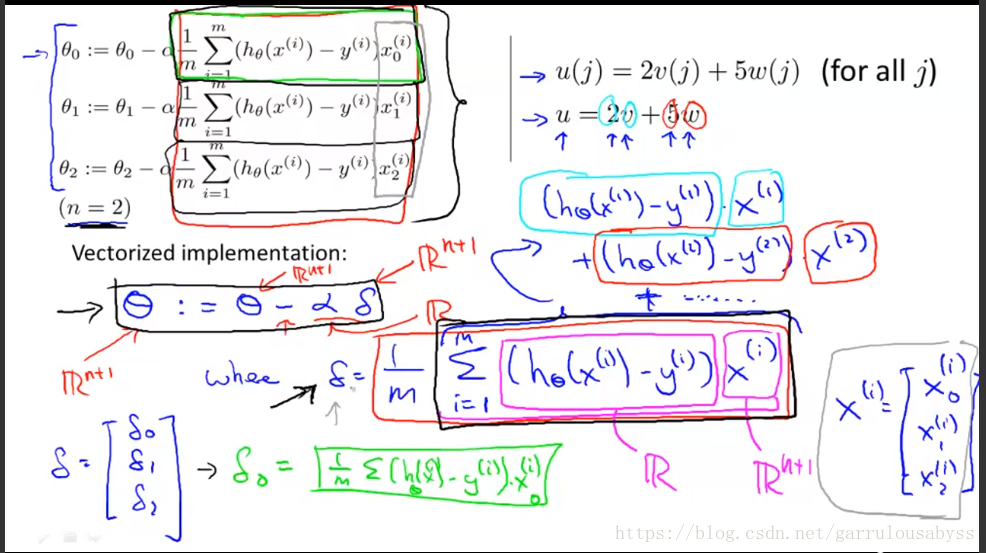 θ₀ := θ₀ − α 1/m ∑_{i=1}^{m} (h_θ(x^{(i)}) − y^{(i)}) x₀^{(i)}
θ₁ := θ₁ − α 1/m ∑_{i=1}^{m} (h_θ(x^{(i)}) − y^{(i)}) x₁^{(i)}
θ₂ := θ₂ − α 1/m ∑_{i=1}^{m} (h_θ(x^{(i)}) − y^{(i)}) x₂^{(i)}
(n = 2)
→ u(j) = 2v(j) + 5w(j) (for all j)
→ u = 2v + 5w
(h_θ(x^{(1)}) − y^{(1)}) · x^{(1)}
+ (h_θ(x^{(2)}) − y^{(2)}) · x^{(2)}
+ ........
Vectorized implementation:
ℝ^{n+1}
ℝ^{n+1}
→ θ := θ − α δ
ℝ
ℝ^{n+1}
where → δ = 1/m ∑_{i=1}^{m} (h_θ(x^{(i)}) − y^{(i)}) x^{(i)}
ℝ ℝ^{n+1}
x^{(i)} = [x₀^{(i)} x₁^{(i)} x₂^{(i)}]
δ = [δ₀ δ₁ δ₂] → δ₀ = 1/m ∑ (h_θ(x^{(i)}) − y^{(i)}) · x₀^{(i)}
https://blog.csdn.net/garrulousabyss